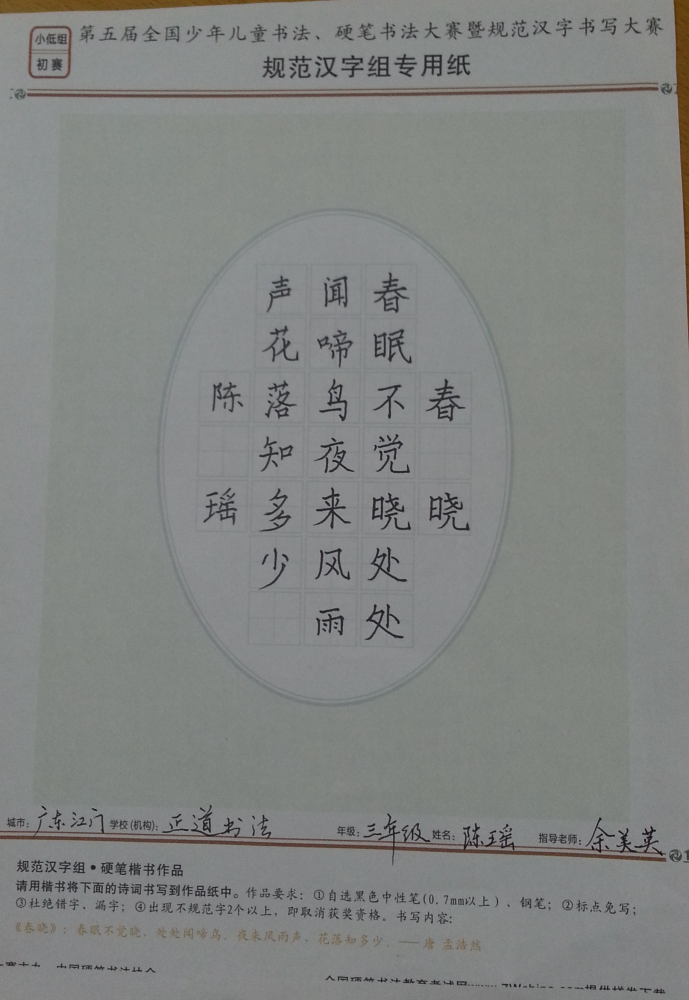 小低组
初赛
第五届全国少年儿童书法、硬笔书法大赛暨规范汉字书写大赛
规范汉字组专用纸
春晓
春眠不觉晓处处
闻啼鸟夜来风雨
声花落知多少
陈瑶
城市：广东江门 学校(机构)：正道书法 年级：三年级 姓名：陈瑶 指导老师：余美英
规范汉字组•硬笔楷书作品
请用楷书将下面的诗词书写到作品纸中。作品要求：①自选黑色中性笔(0.7mm以上)、钢笔；②标点免写；
③杜绝错字、漏字；④出现不规范字2个以上，即取消获奖资格。书写内容：
《春晓》：春眠不觉晓，处处闻啼鸟。夜来风雨声，花落知多少。——唐 孟浩然